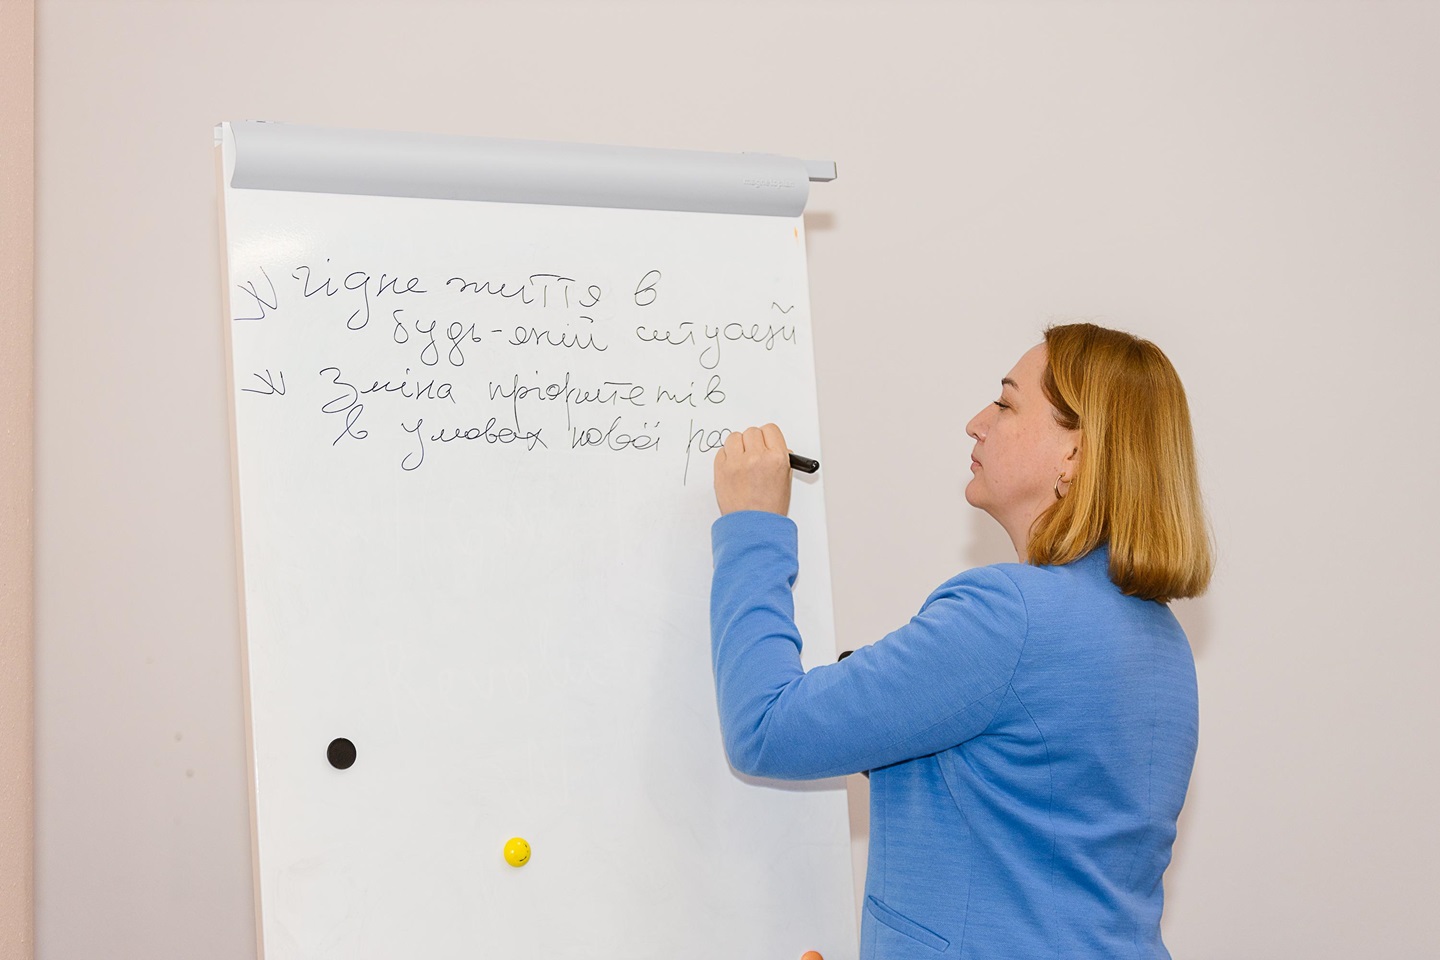 гідне життя в
будь-якій ситуації
Зміна пріоритетів
в умовах нової реа